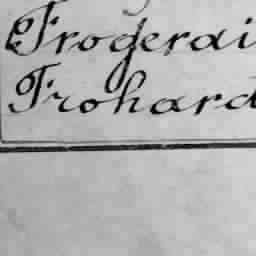 Frogerai
Frohard